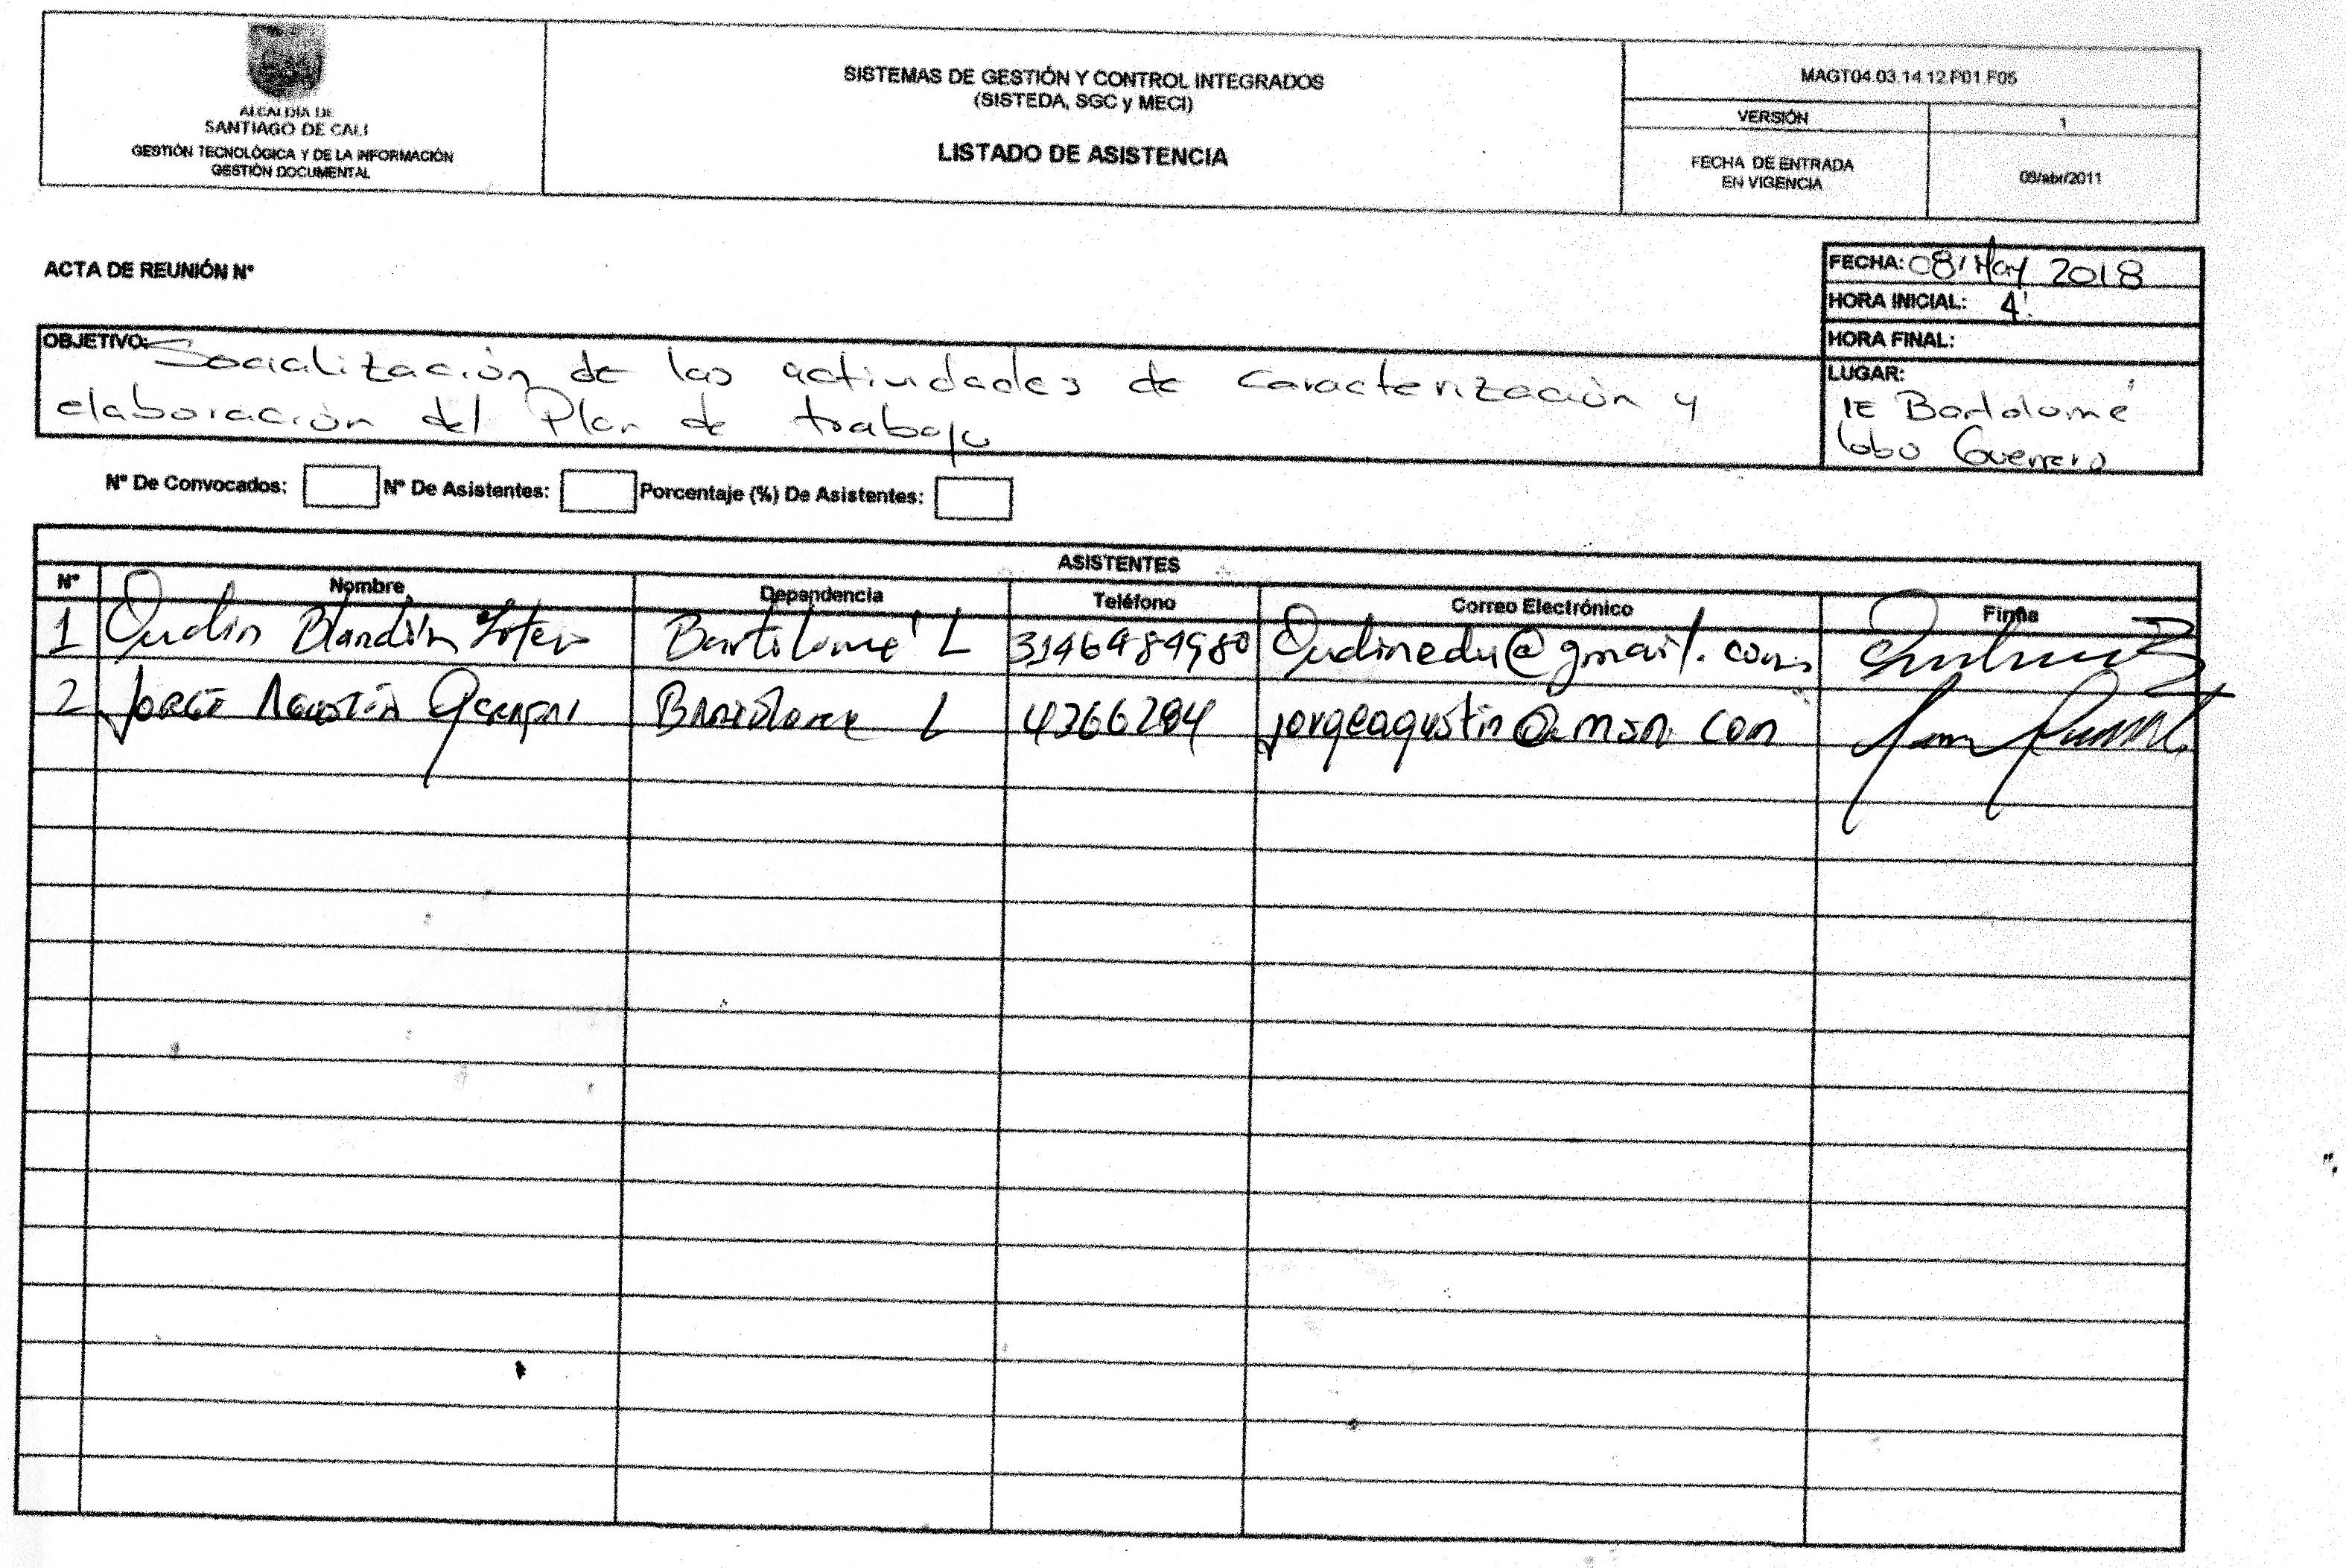 ALCALDÍA DE
SANTIAGO DE CALI
GESTIÓN TECNOLÓGICA Y DE LA INFORMACIÓN
GESTIÓN DOCUMENTAL
SISTEMAS DE GESTIÓN Y CONTROL INTEGRADOS
(SISTEDA, SGC y MECI)
LISTADO DE ASISTENCIA
MAGT04.03.14.12.P01.F05
VERSIÓN 1
FECHA DE ENTRADA
EN VIGENCIA
08/abr/2011
ACTA DE REUNIÓN N°
FECHA: 08/May 2018
HORA INICIAL: 4:
HORA FINAL:
LUGAR:
IE Bartolomé
lobo Guerrero
OBJETIVO: Socialización de las actividades de caracterización y
elaboración del Plan de trabajo
N° De Convocados: N° De Asistentes: Porcentaje (%) De Asistentes:
ASISTENTES
N° Nombre Dependencia Teléfono Correo Electrónico Firma
1 Blandón Bartolomé L 3146984980 @gmail.com
2 Jorge Agustín Bartolome L jorgeagustin@msn.com